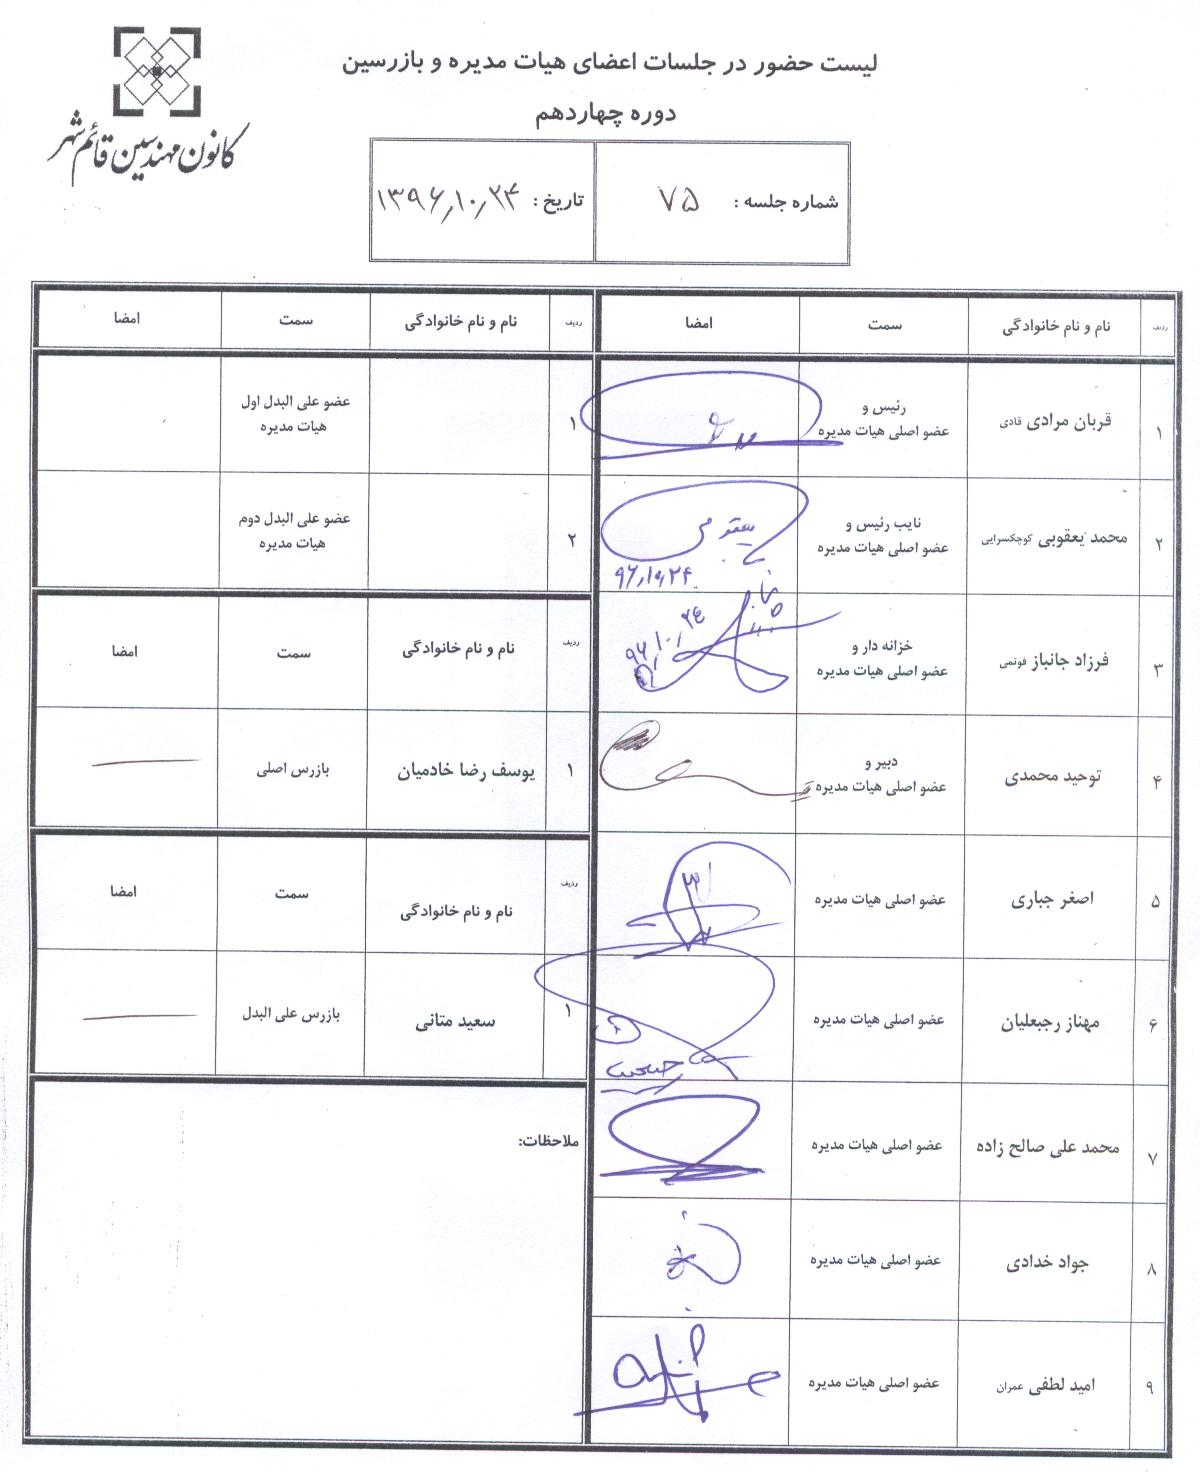 کانون مهندسین قائم شهر
لیست حضور در جلسات اعضای هیات مدیره و بازرسین
دوره چهاردهم
شماره جلسه : ۷۵
تاریخ : ۱۳۹۶٫۱۰٫۲۴
ردیف نام و نام خانوادگی سمت امضا
۱ قربان مرادی قادی رئیس و
عضو اصلی هیات مدیره
۲ محمد یعقوبی کوچکسرایی نایب رئیس و
عضو اصلی هیات مدیره
یعقوبی
۹۶٫۱۰٫۲۴
۳ فرزاد جانباز فوتمی خزانه دار و
عضو اصلی هیات مدیره
۹۶٫۱۰٫۲٤
۴ توحید محمدی دبیر و
عضو اصلی هیات مدیره
۵ اصغر جباری عضو اصلی هیات مدیره
۶ مهناز رجبعلیان عضو اصلی هیات مدیره
۷ محمد علی صالح زاده عضو اصلی هیات مدیره
۸ جواد خدادی عضو اصلی هیات مدیره
۹ امید لطفی عمران عضو اصلی هیات مدیره
ردیف نام و نام خانوادگی سمت امضا
۱ عضو علی البدل اول
هیات مدیره
۲ عضو علی البدل دوم
هیات مدیره
ردیف نام و نام خانوادگی سمت امضا
۱ یوسف رضا خادمیان بازرس اصلی
ردیف نام و نام خانوادگی سمت امضا
۱ سعید متانی بازرس علی البدل
ملاحظات: